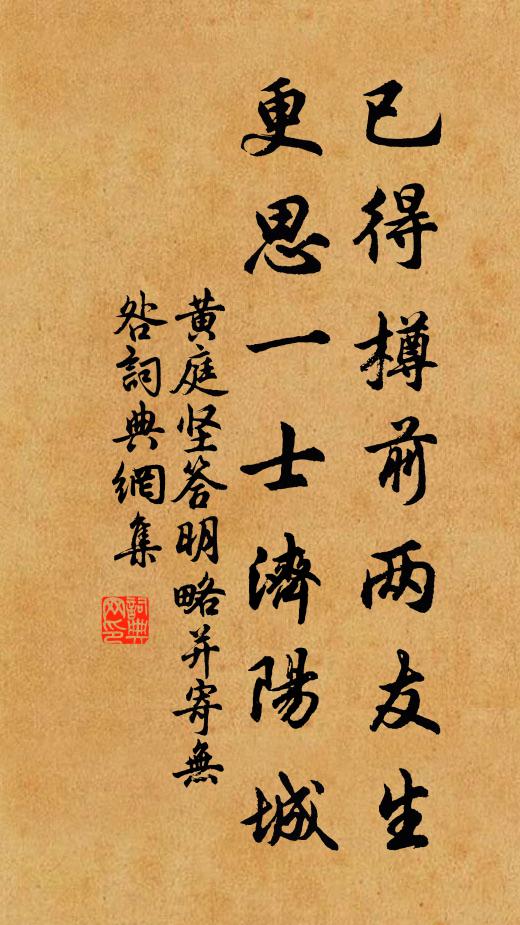 已得樽前两友生
更思一士濟陽城
黄庭坚答明略并寄無
咎詞典網集
詞典
网印